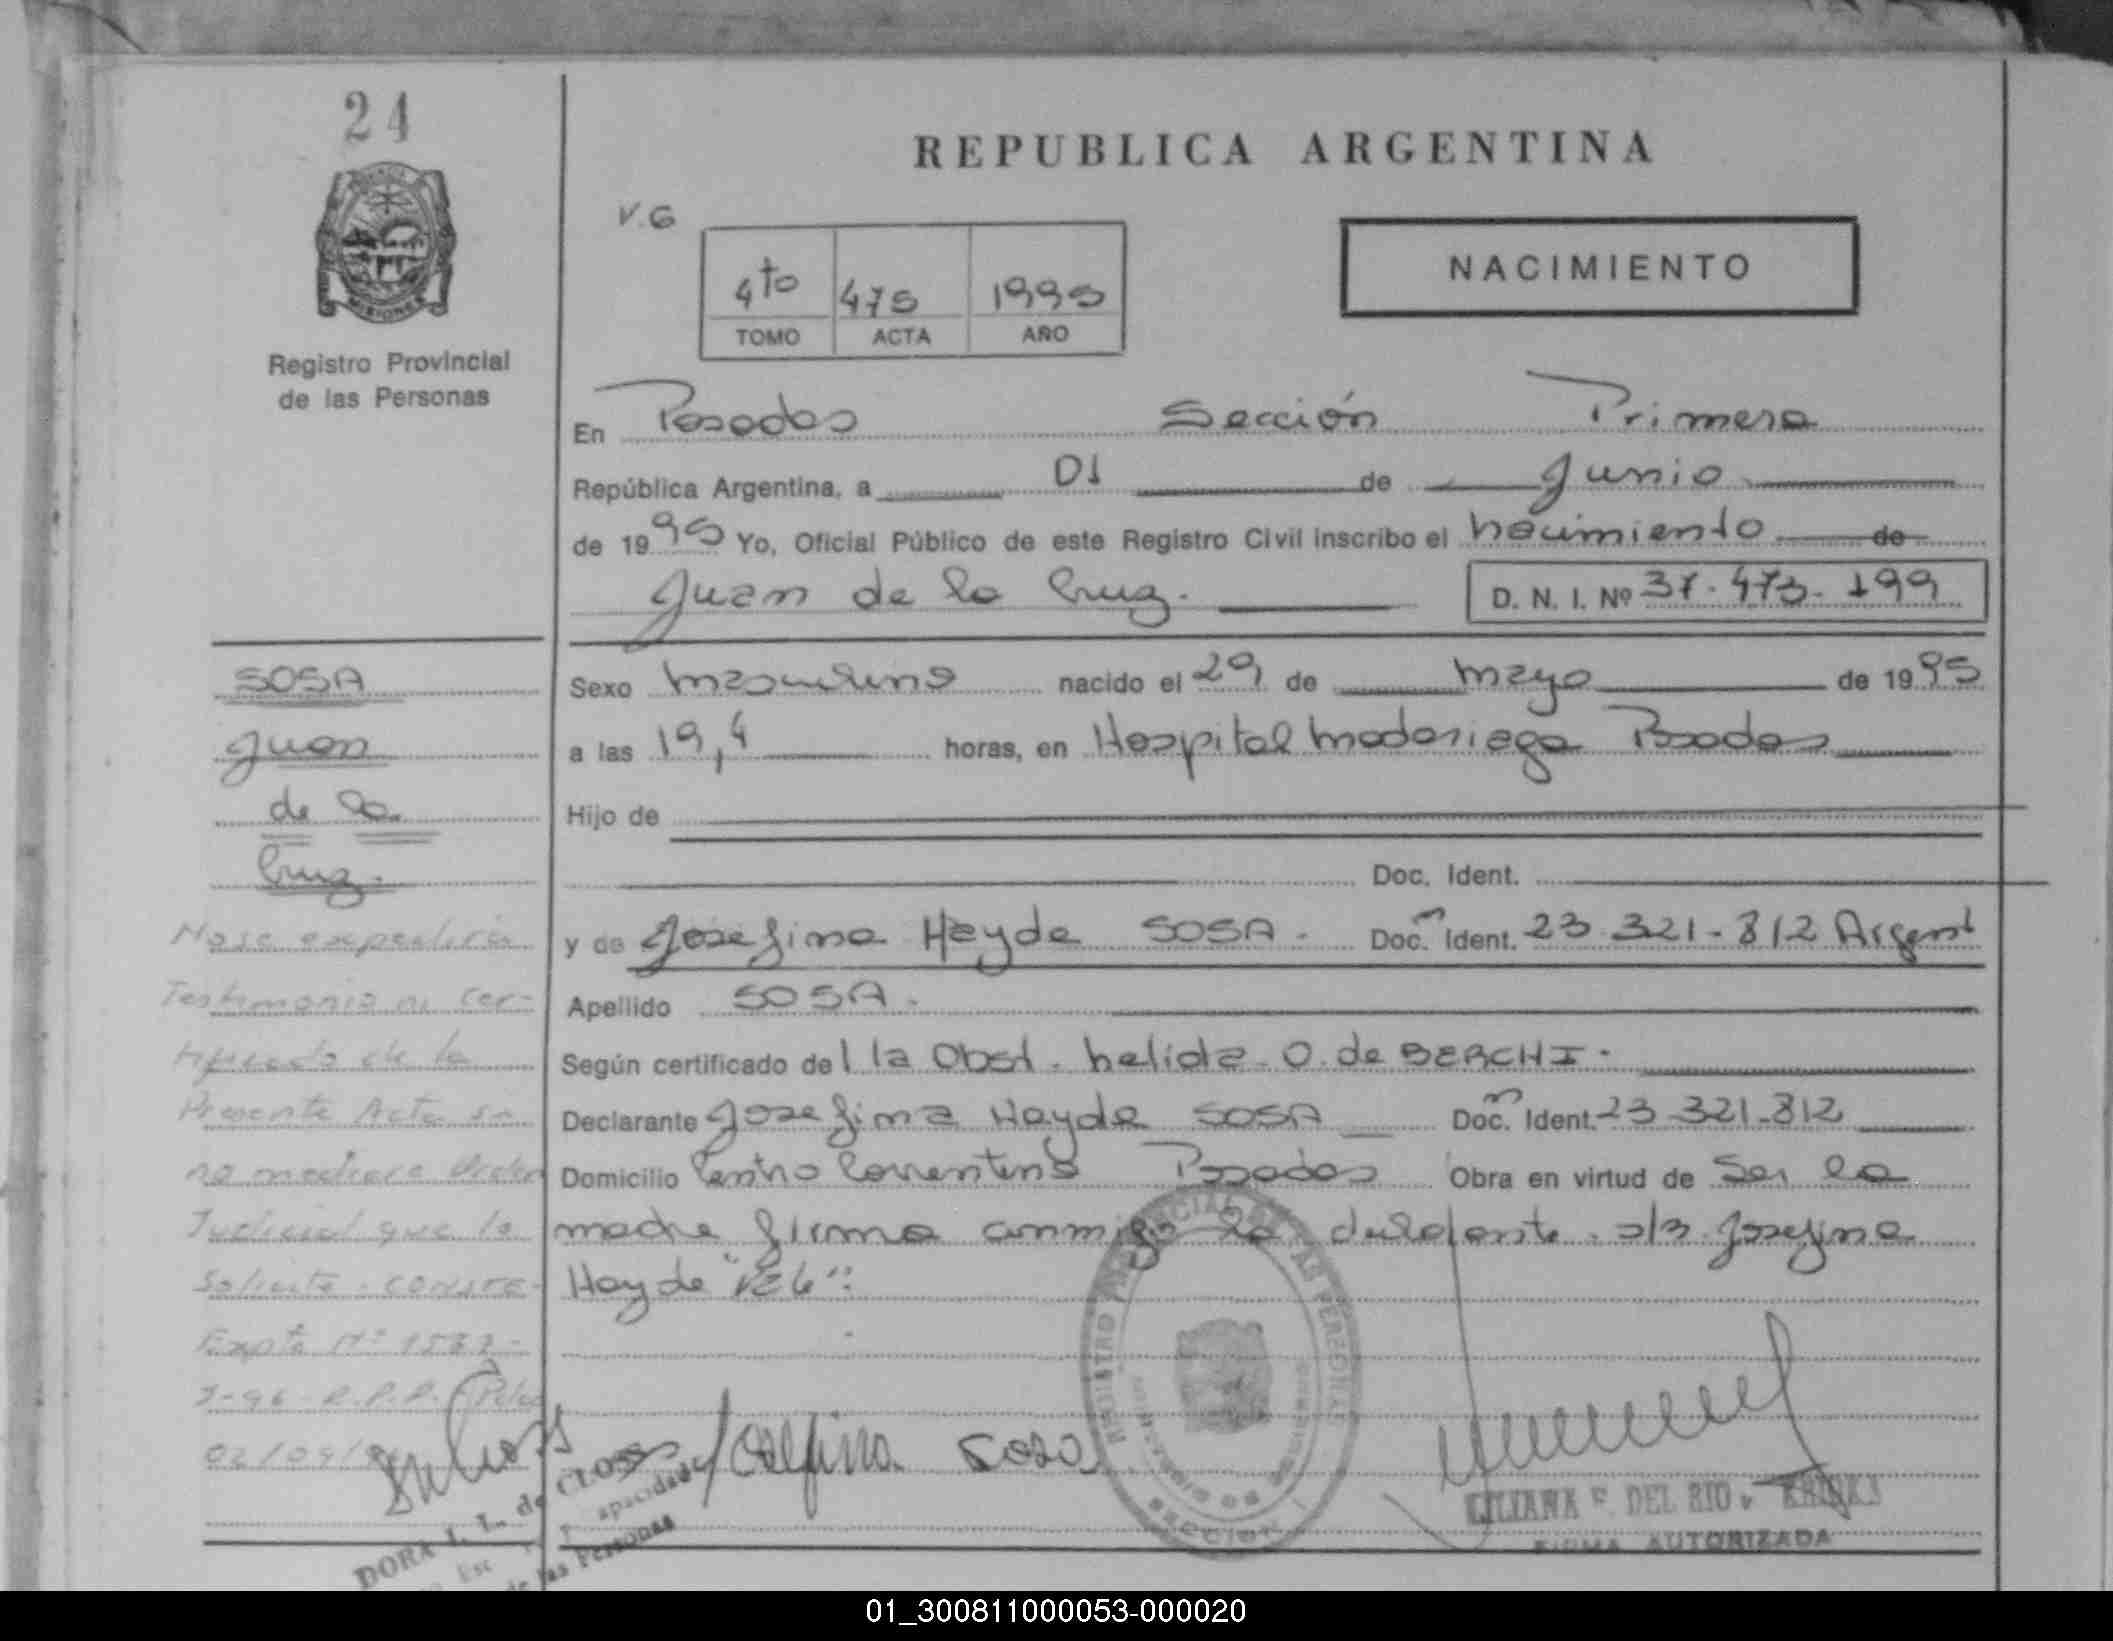 24
REPUBLICA ARGENTINA
V.G
4to 475 1995
TOMO ACTA AÑO
NACIMIENTO
MISIONES
Registro Provincial
de las Personas
En Posadas Sección Primera
República Argentina, a 01 de Junio
de 1995 Yo, Oficial Público de este Registro Civil inscribo el nacimiento de
Juan de la Cruz. D. N. I. Nº 37.473.199
SOSA
Juan
de la
Cruz.
Sexo masculino nacido el 29 de mayo de 1995
a las 19,4 horas, en Hospital Madariaga Posadas
Hijo de
Doc. Ident.
y de Josefina Hayde SOSA. Doc. Ident. 23.321.812 Argent
Apellido SOSA.
Según certificado del la Obst. O. de BERCHI.
Declarante Josefina Hayde SOSA Doc. Ident. 23.321.812
Domicilio Centro Correntino Posadas Obra en virtud de Ser la
madre firma conmigo la declarante. s/r Josefina
Hayde
No se expedirá
Testimonio ni Cer-
tificado de la
Presente Acta si
no mediare Orden
Judicial que lo
Solicite. CONSTE-
Expte Nº
02/09/
Sosa
REGISTRO PROVINCIAL DE LAS PERSONAS
SECCION
LILIANA F. DEL RIO
FIRMA AUTORIZADA
DORA I. L. de CLOSS
de las Personas
01_300811000053-000020